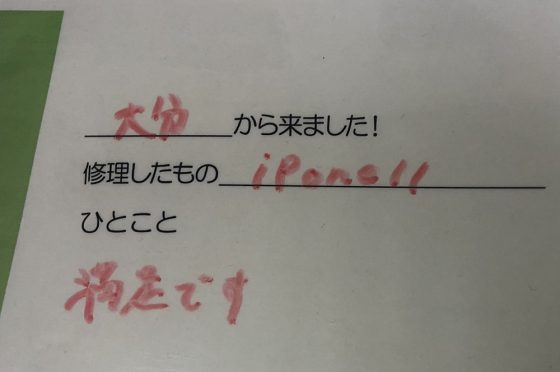 大分から来ました!
修理したもの iPone11
ひとこと
満足です